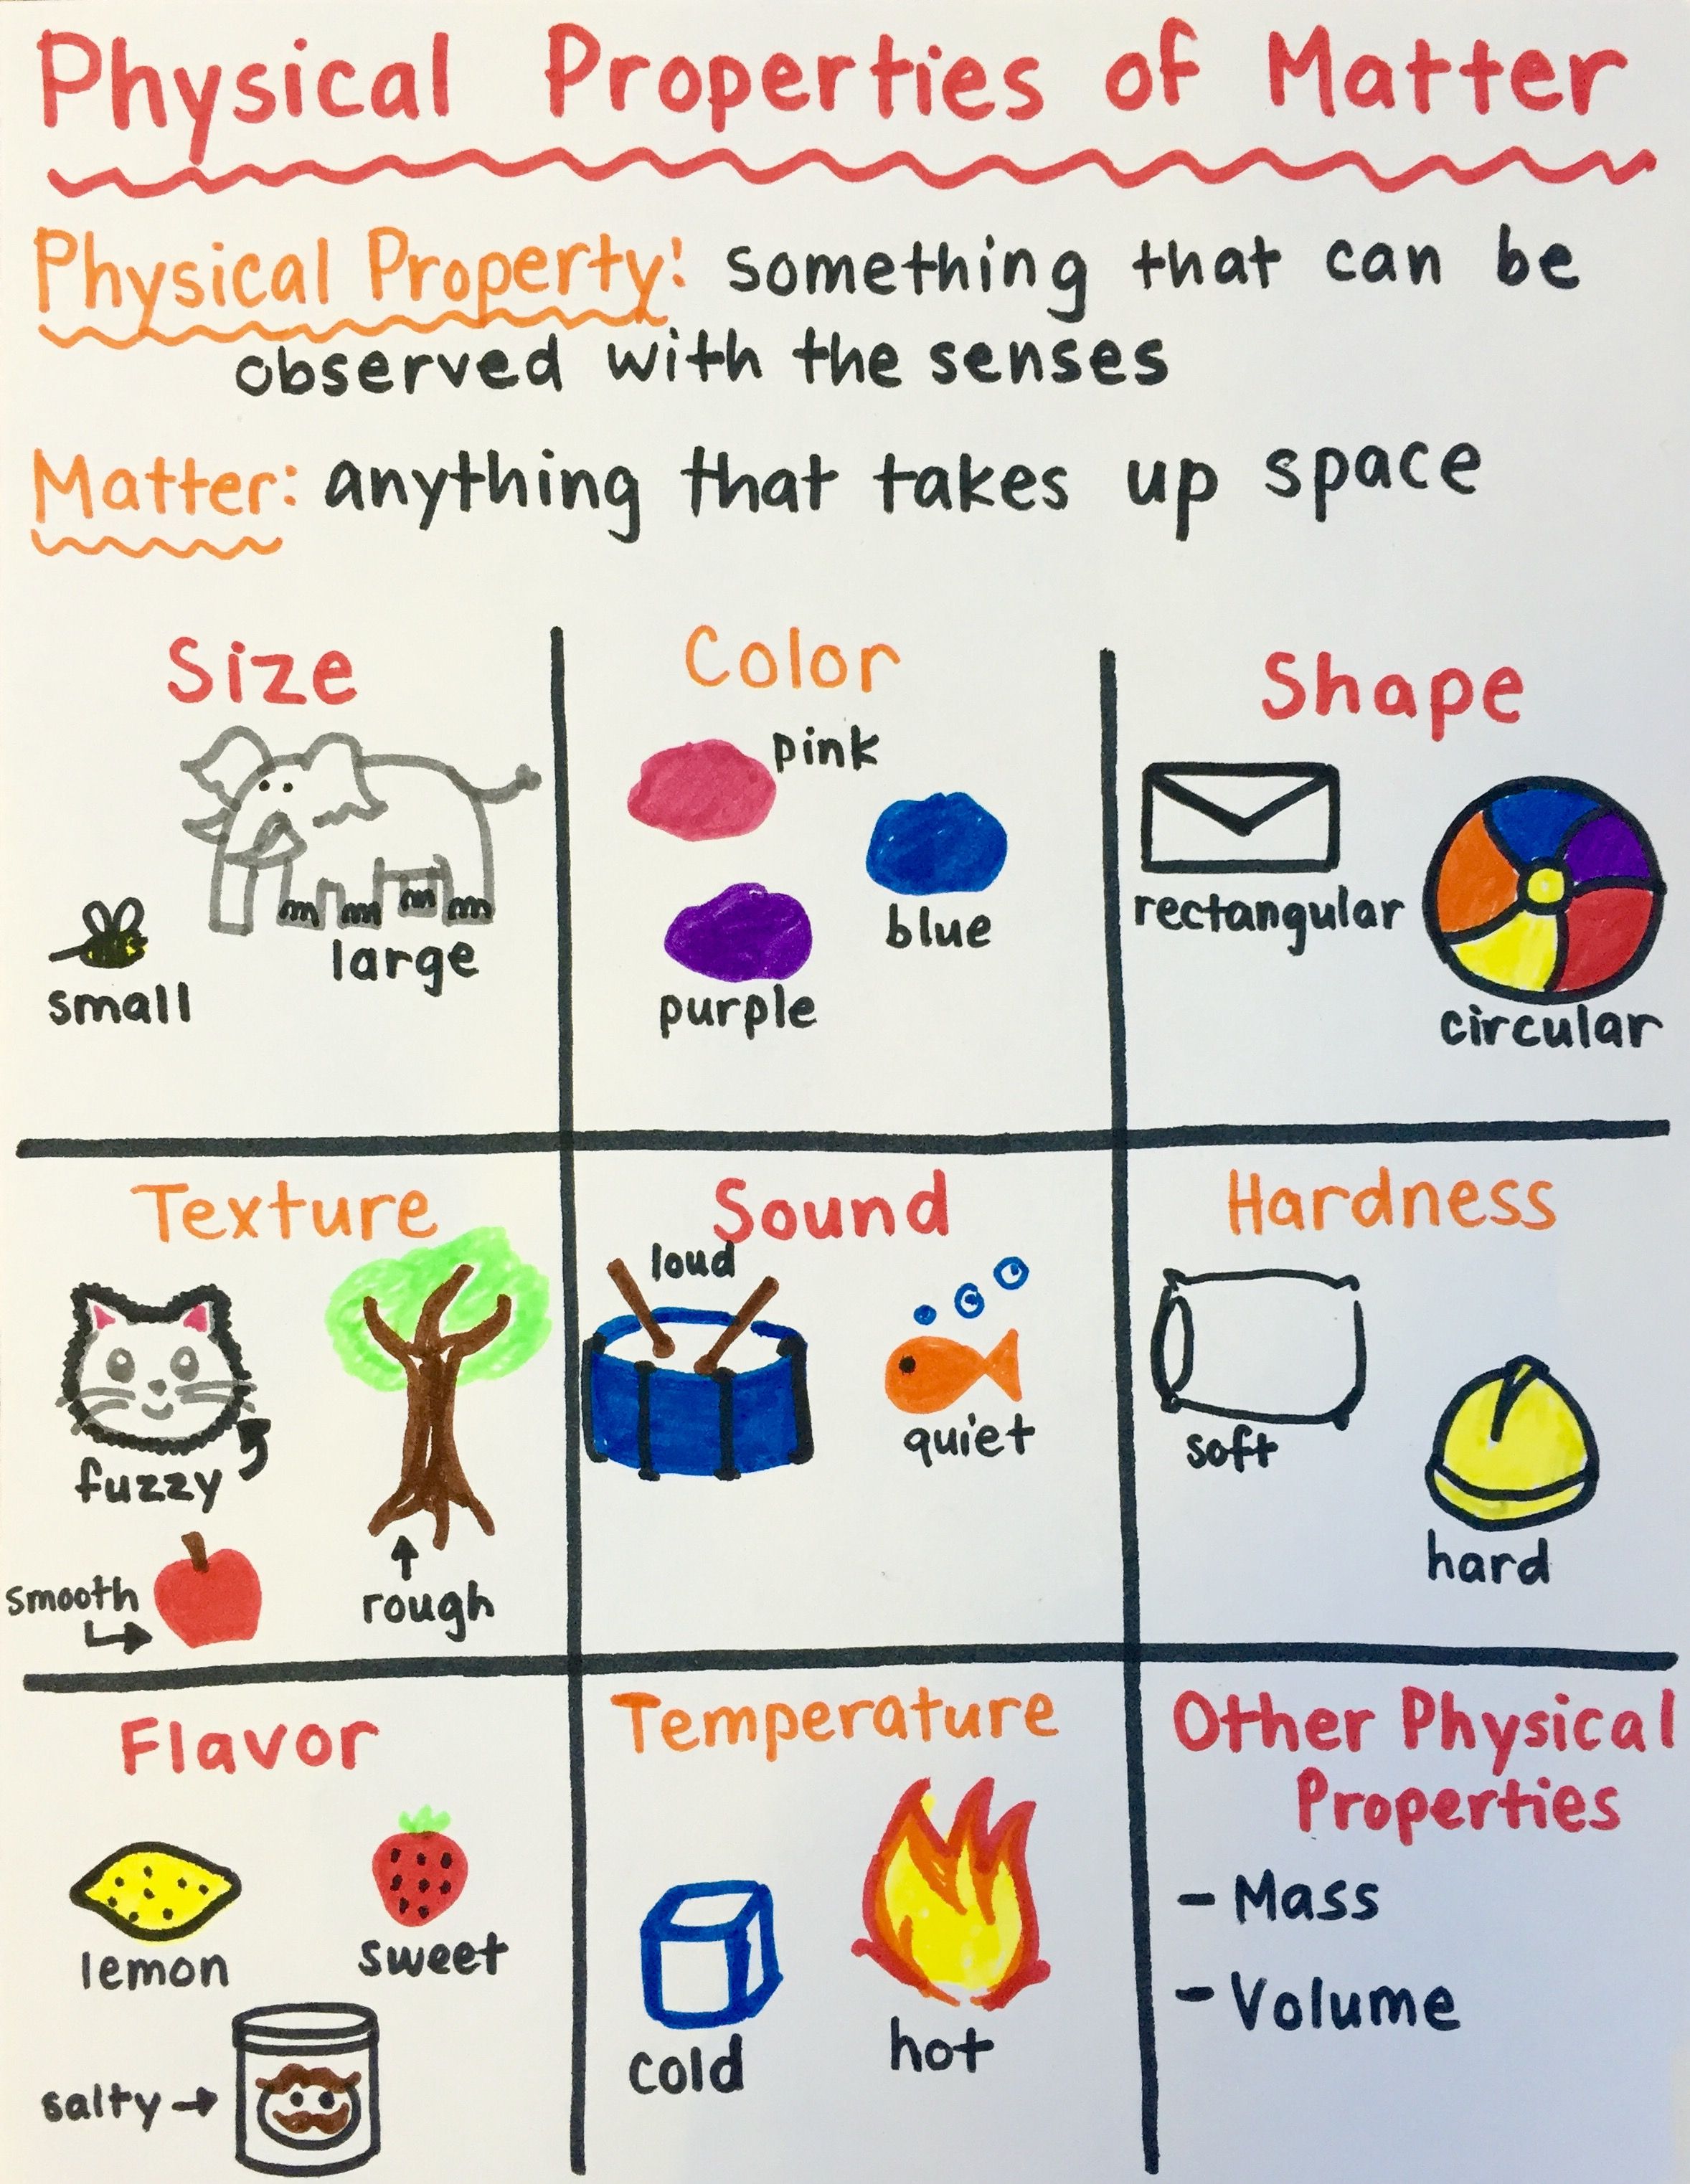 Physical Properties of Matter
Physical Property: something that can be
observed with the senses
Matter: anything that takes up space
Size
large
small
Color
pink
blue
purple
Shape
rectangular
circular
Texture
fuzzy
smooth
rough
Sound
loud
quiet
Hardness
soft
hard
Flavor
lemon
sweet
salty
Temperature
cold
hot
Other Physical
Properties
- Mass
- Volume